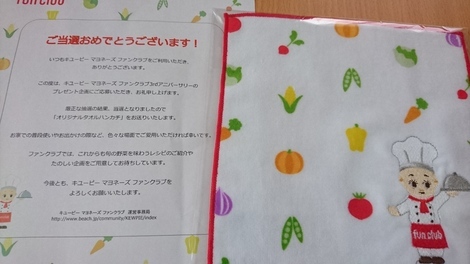 fun club
ご当選おめでとうございます！
いつもキユーピー マヨネーズ ファンクラブをご利用いただき、
ありがとうございます。
この度は、キユーピー マヨネーズ ファンクラブ3rdアニバーサリーの
プレゼント企画にご応募いただき、お礼申し上げます。
厳正な抽選の結果、当選となりましたので
「オリジナルタオルハンカチ」をお送りいたします。
お家での普段使いやお出かけの際など、色々な場面でご愛用いただければ幸いです。
ファンクラブでは、これからも旬の野菜を味わうレシピのご紹介や
たのしい企画をご用意してお待ちしています。
今後とも、キユーピー マヨネーズ ファンクラブを
よろしくお願いいたします。
キユーピー マヨネーズ ファンクラブ 運営事務局
http://www.beach.jp/community/KEWPIE/index
fun club